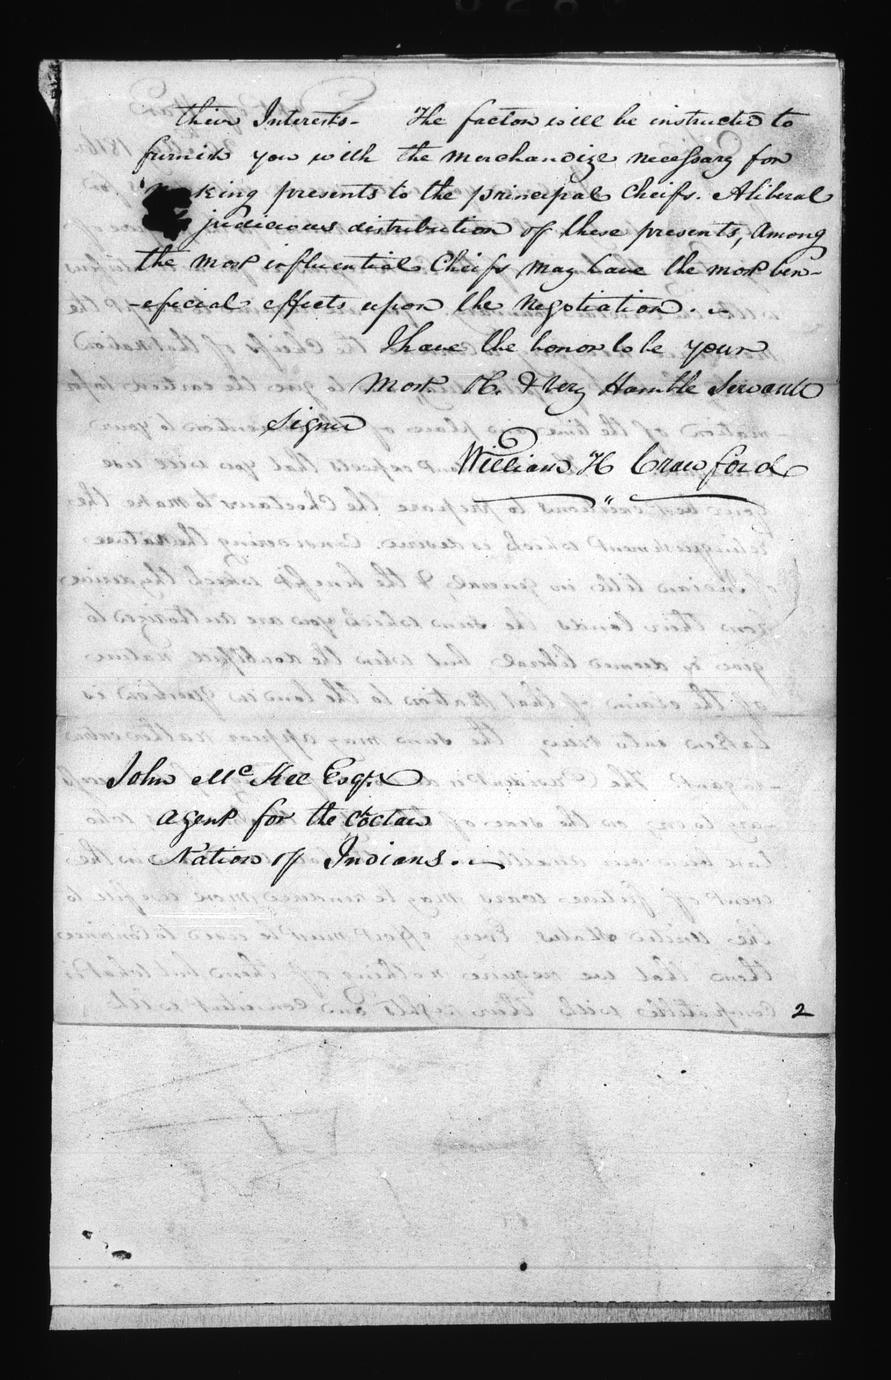 their Interests- The factor will be instructed to
furnish you with the merchandize necessary for
making presents to the principal Cheifs. A liberal
judicious distribution of these presents, among
the most influential Cheifs may have the most ben-
-eficial effects upon the negotiation.
I have the honor to be your
Most Ob. & very Humble Servant
Signed
William H Crawford
John McKee Esqr.
Agent for the Coctaw
Nation of Indians.
2